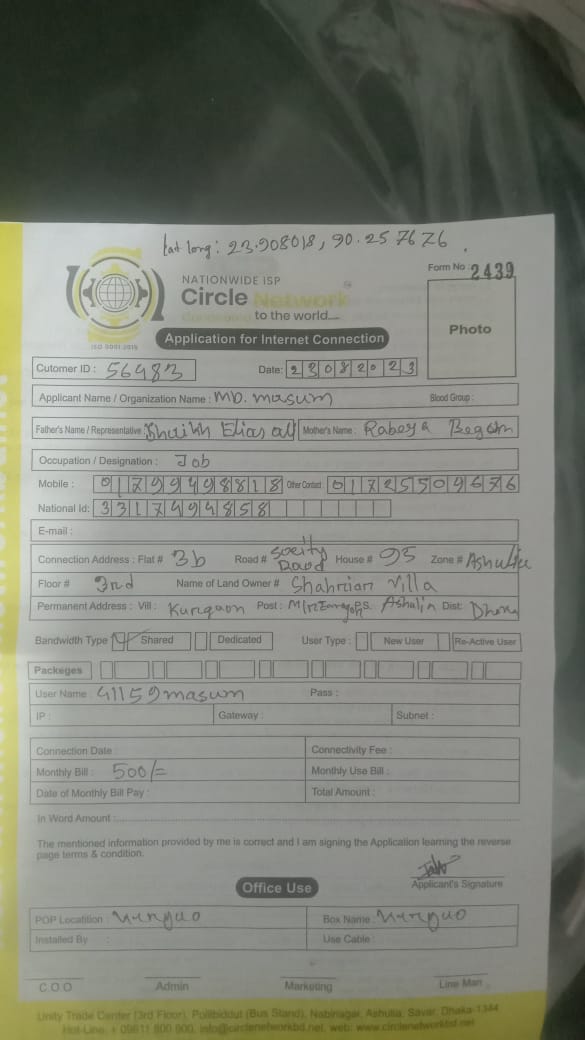 Lat long: 23.908018, 90.257676.
NATIONWIDE ISP
Form No : 2439
Circle Network
Connected to the world....
ISO 9001:2015
Application for Internet Connection
Photo
Cutomer ID : 56483 Date: 23082023
Applicant Name / Organization Name : MD. masum Blood Group :
Father's Name / Representative : Shaikh Elias ali Mother's Name : Rabeya Begom
Occupation / Designation : Job
Mobile : 01799498818 Other Contact : 01725509676
National Id: 3317494858
E-mail :
Connection Address : Flat # 3b Road # Socity Road House # 95 Zone # Ashulia
Floor # 3rd Name of Land Owner # Shahrian villa
Permanent Address : Vill : Kungaon Post : P.S. Ashulia Dist: Dhaka
Bandwidth Type Shared Dedicated User Type : New User Re-Active User
Packeges
User Name : 41159masum Pass :
IP : Gateway : Subnet :
Connection Date : Connectivity Fee :
Monthly Bill : 500/= Monthly Use Bill :
Date of Monthly Bill Pay : Total Amount :
In Word Amount :
The mentioned information provided by me is correct and I am signing the Application learning the reverse
page terms & condition.
Applicant's Signature
Office Use
POP Locatition : Box Name :
Installed By : Use Cable :
C.O.O Admin Marketing Line Man
Unity Trade Center (3rd Floor), Pollibiddut (Bus Stand), Nabinagar, Ashulia, Savar, Dhaka-1344
Hot-Line: + 09611 800 900, info@circlenetworkbd.net, web: www.circlenetworkbd.net